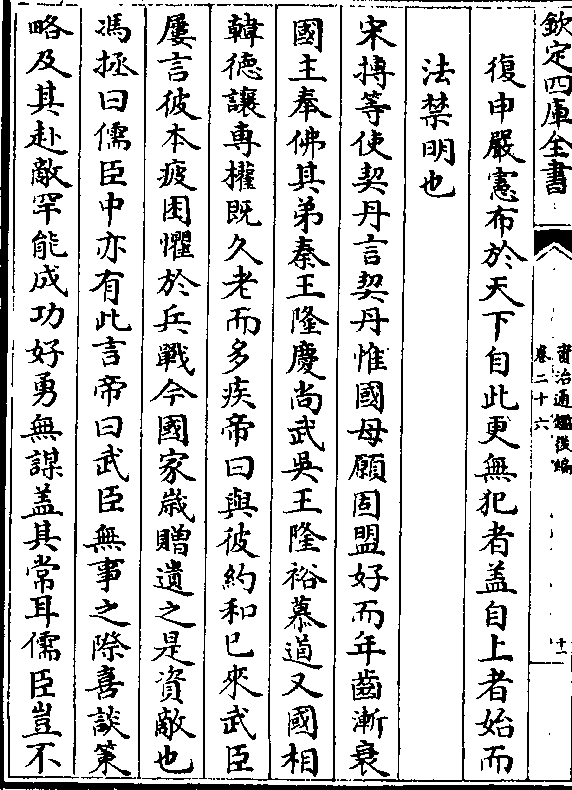 欽定四庫全書
資治通鑑後編
卷二十六
十一
復申嚴憲布於天下自此更無犯者蓋自上者始而
法禁明也
宋摶等使契丹言契丹惟國母願固盟好而年齒漸衰
國主奉佛其弟秦王隆慶尚武吳王隆裕慕道又國相
韓德讓專權既久老而多疾帝曰與彼約和已來武臣
屢言彼本疲困懼於兵戰今國家歲贈遺之是資敵也
馮拯曰儒臣中亦有此言帝曰武臣無事之際喜談策
略及其赴敵罕能成功好勇無謀蓋其常耳儒臣豈不